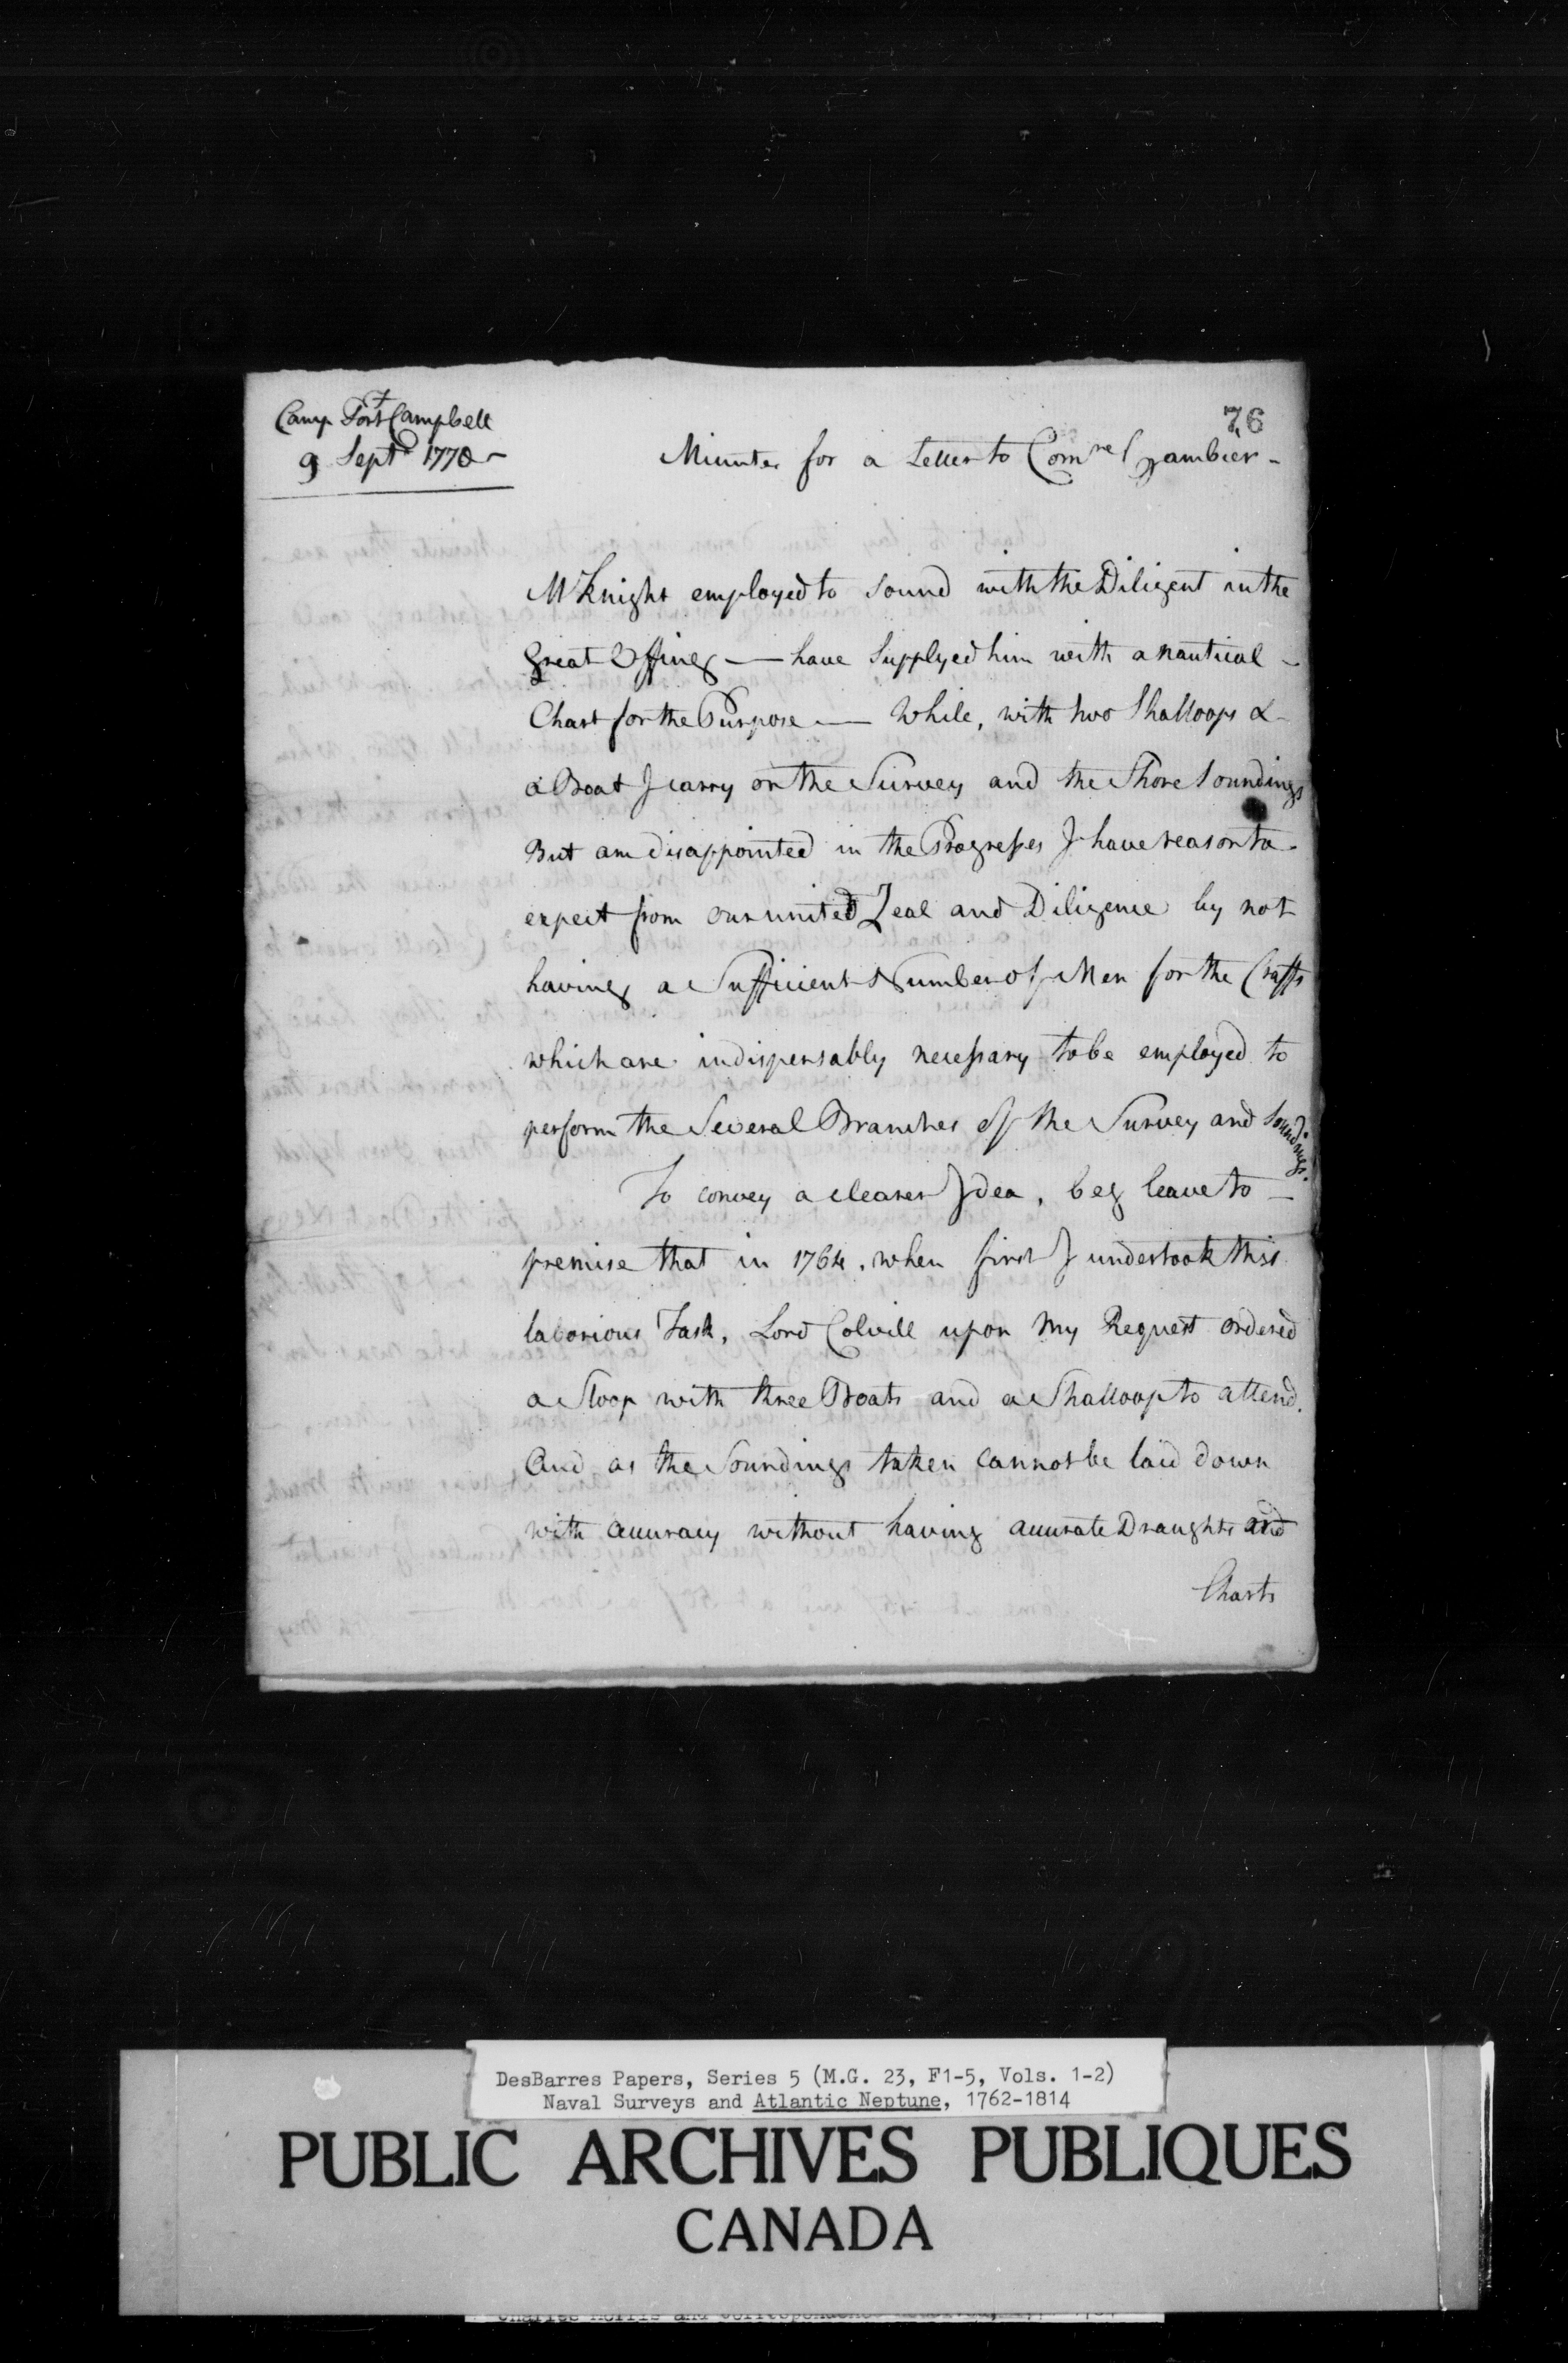 Camp Fort Campbell
9 Septr 1770
76
Minutes for a Letter to Comre Gambier -
Mr Knight employed to Sound with the Diligent in the
great Offing — have Supplyed him with a nautical -
Chart for the Purpose — While, with two Shalloops &
a Boat I carry on the Survey and the Shore Soundings
But am disappointed in the Progresses I have reason to
expect from our united Zeal and Diligence by not
having a Sufficient Number of Men for the Crafts
which are indispensably necessary to be employed to
perform the Several Branches of the Survey and Soundings.
To convey a clearer Idea, beg leave to -
premise that in 1764, when first I undertook this
laborious Task, Lord Colvill upon my Request ordered
a Sloop with three Boats and a Shalloop to attend.
And as the Soundings taken cannot be laid down
with accuracy without having accurate Draughts and
Charts
DesBarres Papers, Series 5 (M.G. 23, F1-5, Vols. 1-2)
Naval Surveys and Atlantic Neptune, 1762-1814
PUBLIC ARCHIVES PUBLIQUES
CANADA